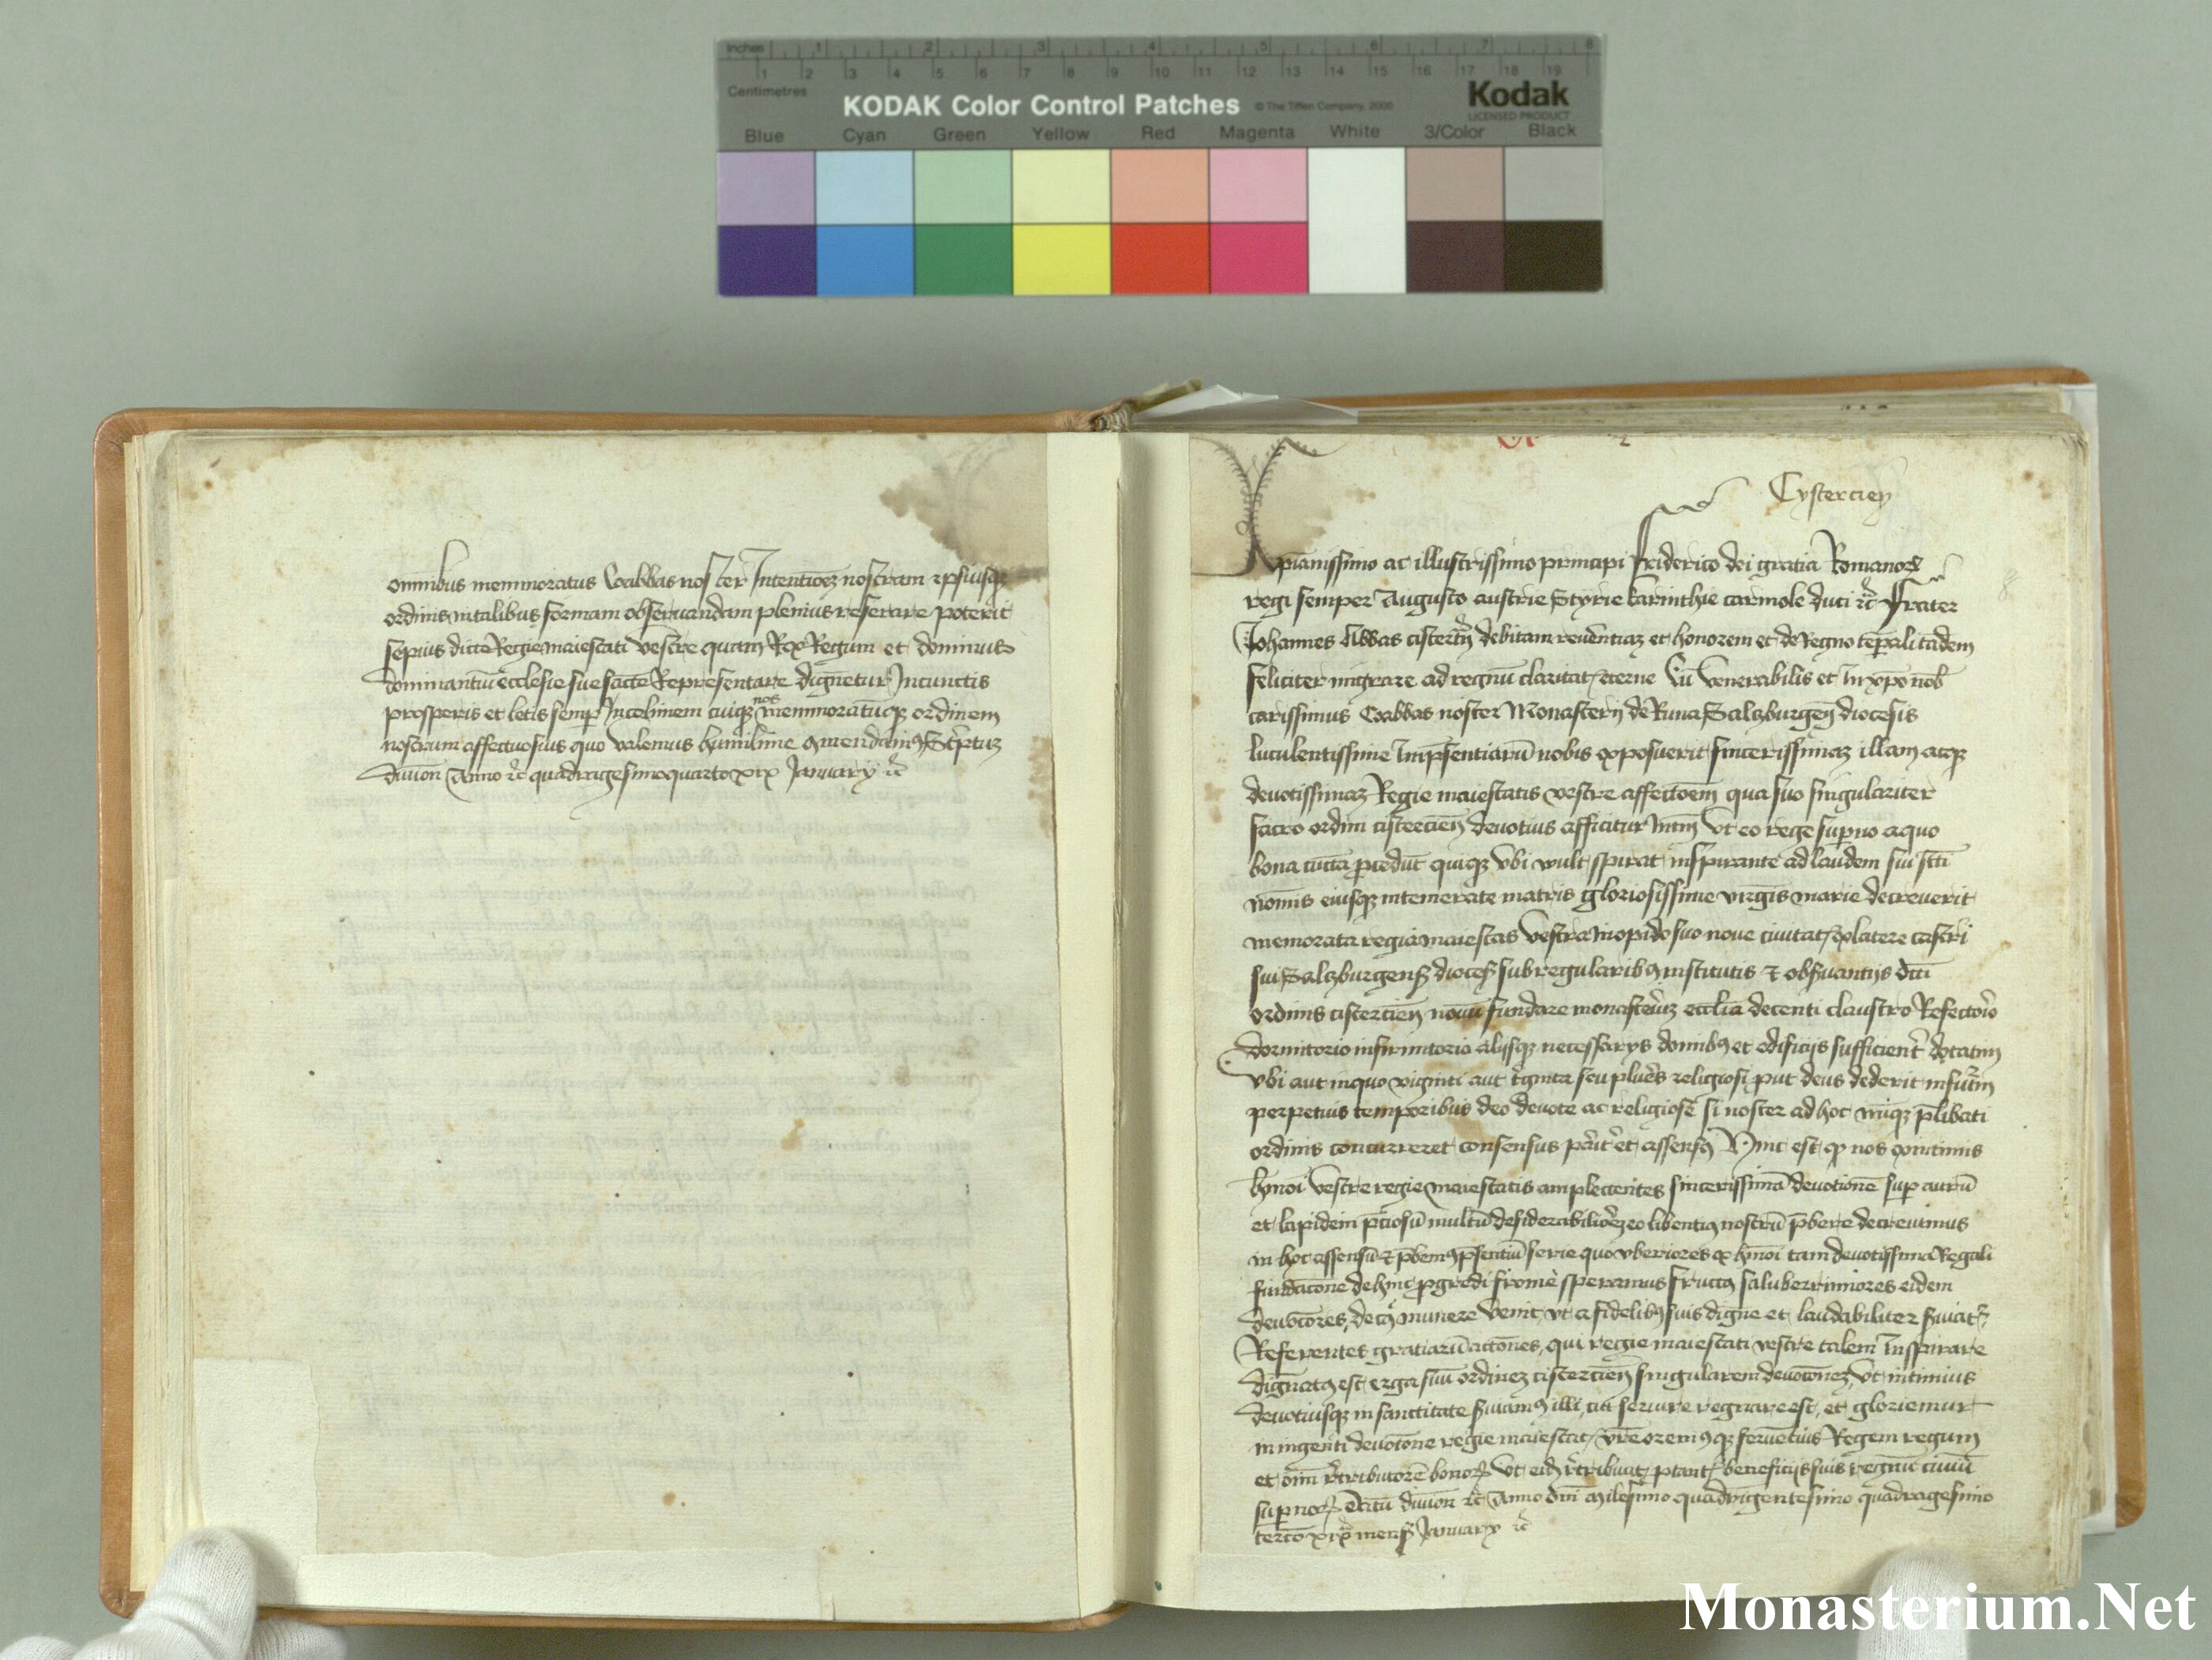 Inches 1 2 3 4 5 6 7 8
1 2 3 4 5 6 7 8 9 10 11 12 13 14 15 16 17 18 19
Centimetres
KODAK Color Control Patches © The Tiffen Company, 2000 Kodak
LICENSED PRODUCT
Blue Cyan Green Yellow Red Magenta White 3/Color Black
omnibus memmoratus Coabbas noster Intentioēz nostram ipsiusqʒ
ordinis in talibus formam obseruandam plenius reserare poterit
sepius dicte Regie maiestati vestre quam Rex Regum et dominus
dominantiū ecclesie sue sancte Representare dignetur In cunctis
prosperis et letis semp Incolimem cuiqʒ nos memmoratūqʒ ordinem
nostrum affectuosius quo valemus humilime
Anno ⁊c̄ quadragesimoquarto xix January ⁊c̄
Cystercieñ
Xp̄ianissimo ac illustrissimo principi Friderico dei gratia Romanoꝝ
regi semper Augusto austrie Styrie karinthie carniole duci ⁊c̄ Frater
Johannes Abbas cistercīn debitam reuerētiaz et honorem et de Regno tēp̄ali tādem
feliciter migrare ad regnū claritat eterne Cū Venerabilis et In xp̄o nob̄
carissimus Coabbas noster Monasterij de Runa Salczburgeñ diocesis
luculentissime Imp̄sentiarū nobis exposuerit sincerissimaz illam atqʒ
deuotissimaz Regie maiestatis vestre affectōem qua suo singulariter
sacro ordini cistercieñ deuotius afficitur Intm̄ Vt eo rege sup̄no a quo
bona cūcta p̄cedūt quiqʒ vbi wult spirat inspirante ad laudem sui scti
nomīs eiusqʒ intemerate matris gloriosissime virgīs marie decreuerit
memorata regia maiestas Vestra In opido suo noue ciuitat ex latere castri
sui Salczburgenß dioceß sub regularibꝯ institutis ⁊ obßuantijs dc̄ti
ordinis cistercieñ nouū fundare monasteriūz ecclīa decenti claustro Refectorio
dormitorio infirmitorio alijsqʒ necessarys domibꝯ et edificijs sufficient dotatum
vbi aut in quo viginti aut triginta seu plures religiosi put deus dederit in futm̄
perpetuis temporibus deo deuote ac religiose si noster ad hoc p̄libati
ordinis concurreret consensus parit et assensꝯ Hinc est qꝫ nos
hmōi Vestre regie maiestatis amplectentes sincerissimā deuotionē sup aurū
et lapidem p̄ciosū multū desiderabiliorēz eo libentiꝯ nostrū p̄bere decreuimus
in hoc assensū ⁊ p̄bemꝯ p̄sentiū serie quo vberiores ex hmōi tam deuotissima Regali
fundacōne de hinc p̄gredi speramus fructꝯ saluberrimiores eidem
munere Venit vt a fidelibꝯ suis digne et laudabiliter
Referentes gratiarū actōnes, qui regie maiestati vestre talem Inspirare
dignatꝯ est erga suū ordinez cistercieñ singularem deuocōnez, Vt intimius
deuotiusqʒ in sanctitate ßuiamꝯ illi, cui seruire regnare est, et gloriemur
in ingenti deuocōne regie maiestat vr̄e oremꝯqʒ feruētius Regem regum
et oīm retributorē bonoꝝ Vt eid retribuat beneficijs suis regnū ciuiū
supnoꝝ Datū diuion ⁊c̄ Anno dn̄i Milesimo quadringentesimo quadragesimo
tercō xix mensß January ⁊c̄
Monasterium.Net